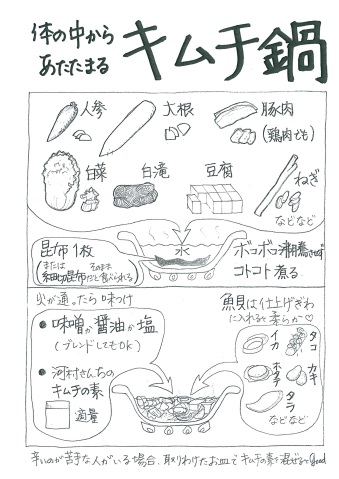 体の中から
あたたまる
キムチ鍋
人参
大根
豚肉
(鶏肉でも)
白菜
白滝
豆腐
ねぎ
などなど
水
昆布1枚
(または
そのまま
細切昆布だと食べられる)
ボコボコ沸騰させず
コトコト煮る
火が通ったら味つけ
● 味噌か醤油か塩
(ブレンドしてもOK)
● 河村さんちの
キムチの素
適量
魚貝は仕上げぎわ
に入れると柔らか♡
イカ
タコ
ホタテ
カキ
タラ
などなど
辛いのが苦手な人がいる場合、取りわけたお皿でキムチの素を混ぜるで Good